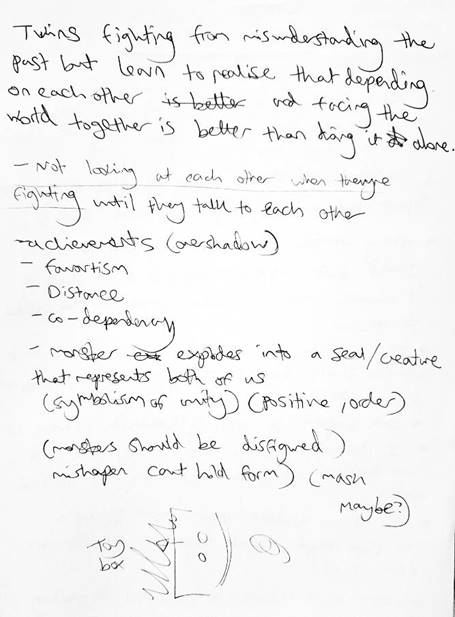 Twins fighting from misunderstanding the
past but learn to realise that depending
on each other is better and facing the
world together is better than doing it alone.
- Not looking at each other when theyre
fighting until they talk to each other
- achievements (overshadow)
- favortism
- Distance
- co-dependency
- monster explodes into a seal/creature
that represents both of us
(symbolism of unity) (positive, order)
(monsters should be disfigured)
mishapen cant hold form) (mask
maybe?)
Toy
box